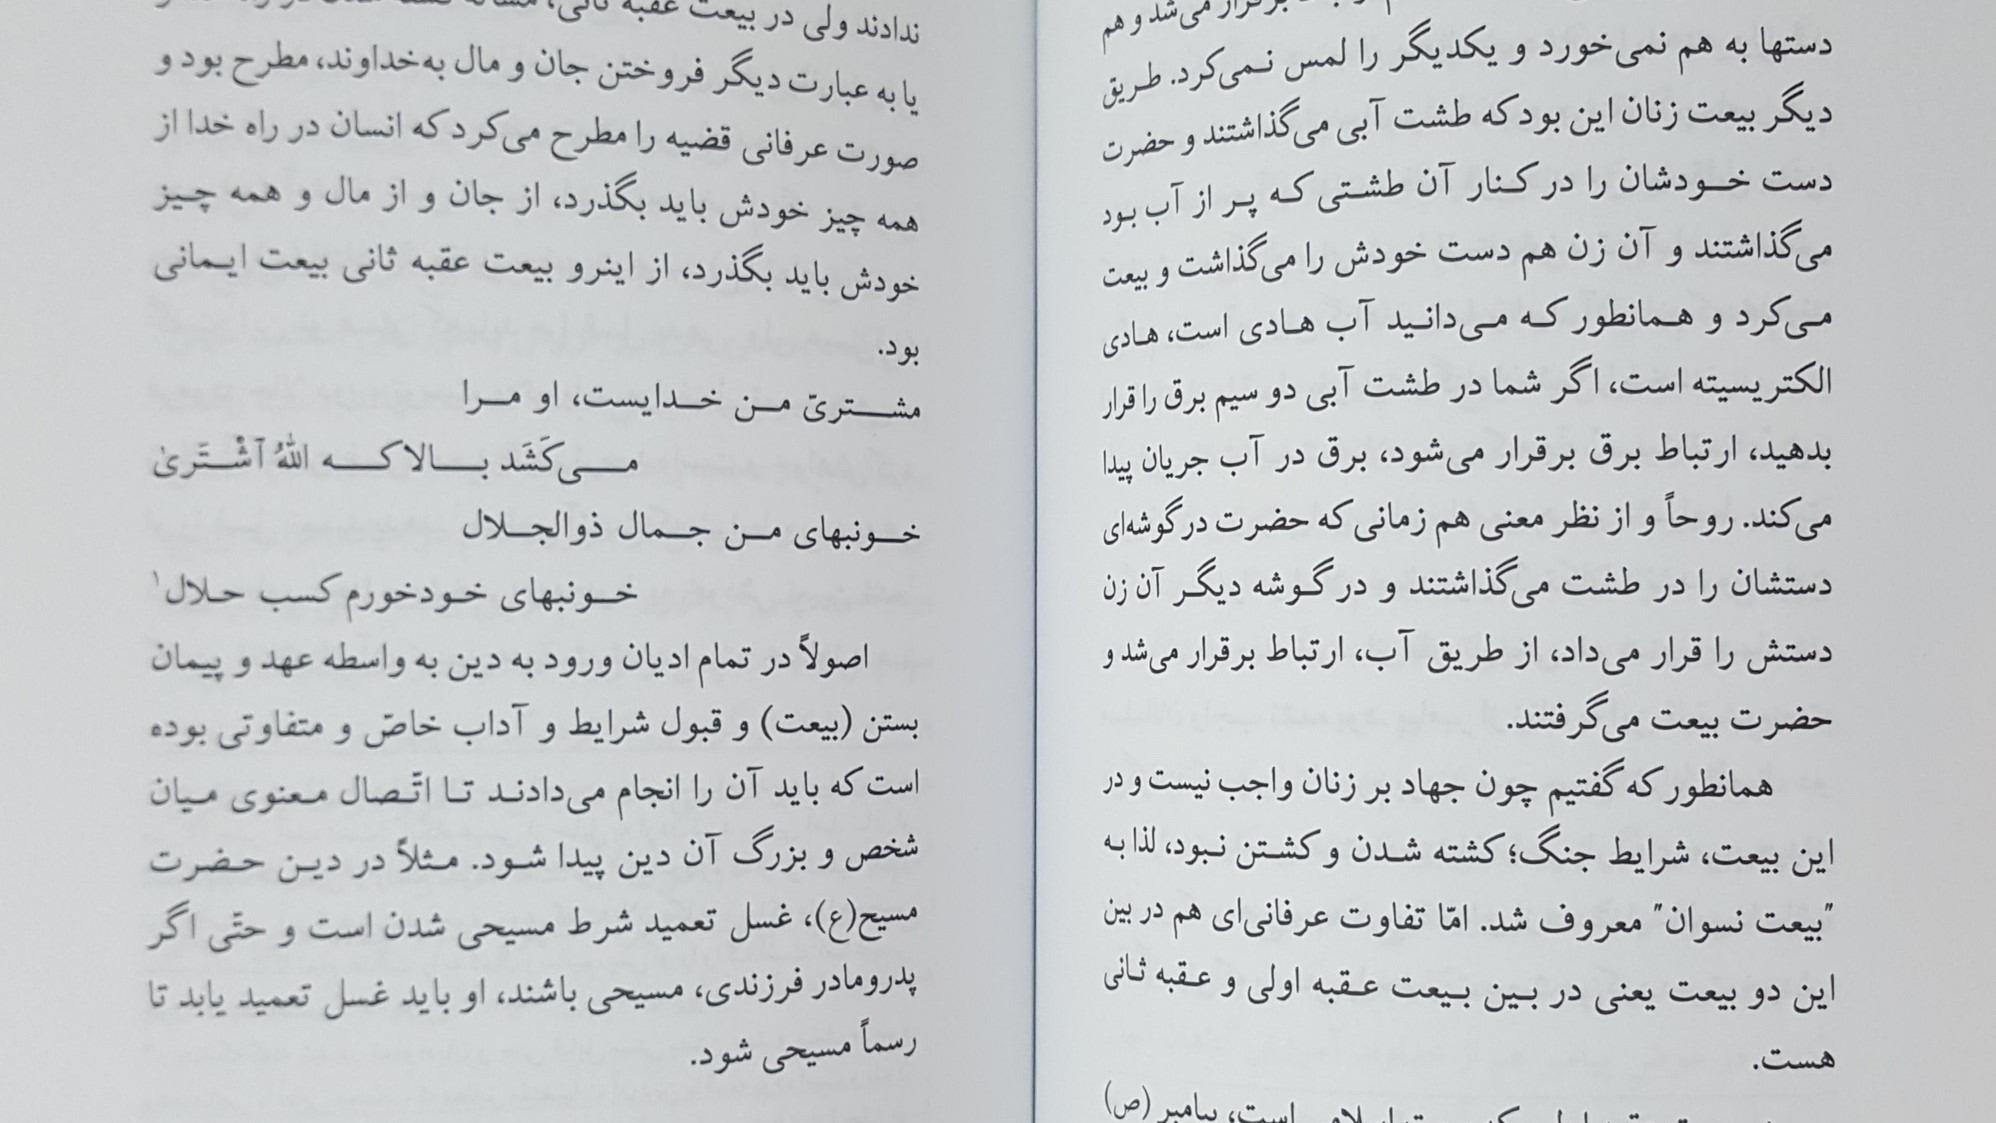 برقرار می‌شد و هم
دستها به هم نمی‌خورد و یکدیگر را لمس نمی‌کرد. طریق
دیگر بیعت زنان این بود که طشت آبی می‌گذاشتند و حضرت
دست خودشان را در کنار آن طشتی که پر از آب بود
می‌گذاشتند و آن زن هم دست خودش را می‌گذاشت و بیعت
می‌کرد و همانطور که می‌دانید آب هادی است، هادی
الکتریسیته است، اگر شما در طشت آبی دو سیم برق را قرار
بدهید، ارتباط برق برقرار می‌شود، برق در آب جریان پیدا
می‌کند. روحاً و از نظر معنی هم زمانی که حضرت در گوشه‌ای
دستشان را در طشت می‌گذاشتند و در گوشه دیگر آن زن
دستش را قرار می‌داد، از طریق آب، ارتباط برقرار می‌شد و
حضرت بیعت می‌گرفتند.
همانطور که گفتیم چون جهاد بر زنان واجب نیست و در
این بیعت، شرایط جنگ؛ کشته شدن و کشتن نبود، لذا به
"بیعت نسوان" معروف شد. امّا تفاوت عرفانی‌ای هم در بین
این دو بیعت یعنی در بین بیعت عقبه اولی و عقبه ثانی
هست.
است، پیامبر (ص)
ندادند ولی در بیعت عقبه ثانی، مسأله
یا به عبارت دیگر فروختن جان و مال به‌خداوند، مطرح بود و
صورت عرفانی قضیه را مطرح می‌کرد که انسان در راه خدا از
همه چیز خودش باید بگذرد، از جان و از مال و همه چیز
خودش باید بگذرد، از اینرو بیعت عقبه ثانی بیعت ایمانی
بود.
مشتریّ من خدایست، او مرا
می‌کَشَد بالا که اللهُ آشْتَریٰ
خونبهای من جمال ذوالجلال
خونبهای خود خورم کسب حلال۱
اصولاً در تمام ادیان ورود به دین به واسطه عهد و پیمان
بستن (بیعت) و قبول شرایط و آداب خاصّ و متفاوتی بوده
است که باید آن را انجام می‌دادند تا اتّصال معنوی میان
شخص و بزرگ آن دین پیدا شود. مثلاً در دین حضرت
مسیح(ع)، غسل تعمید شرط مسیحی شدن است و حتّی اگر
پدرومادر فرزندی، مسیحی باشند، او باید غسل تعمید یابد تا
رسماً مسیحی شود.